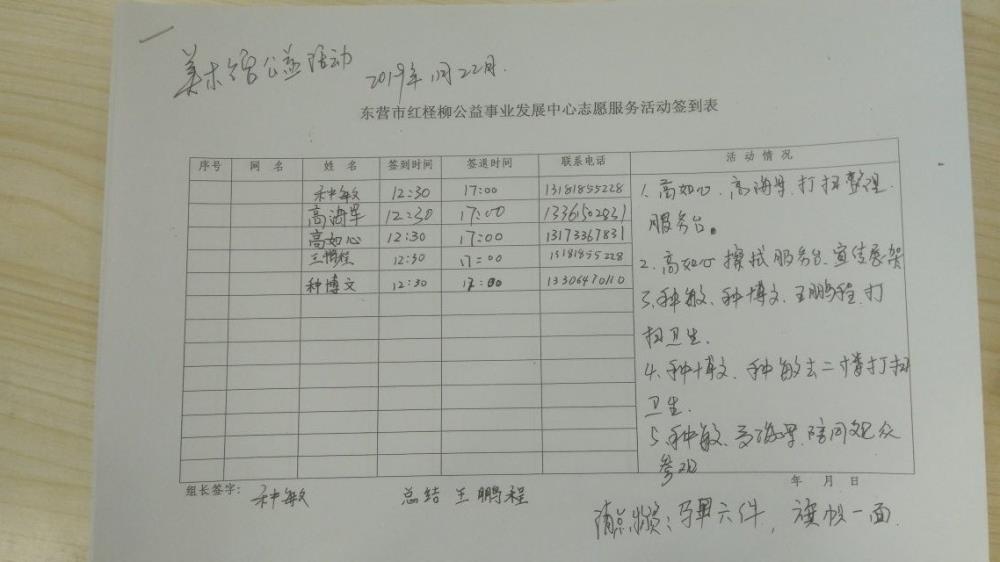 美术馆公益活动 2019年11月22日.
东营市红柽柳公益事业发展中心志愿服务活动签到表
序号 网名 姓名 签到时间 签退时间 联系电话 活动情况
种敏 12:30 17:00 13181855228
高海军 12:30 17:00 1336502831
高如心 12:30 17:00 13173367831
王鹏程 12:30 17:00 13181855228
种博文 12:30 17:00 13306470110
1、高如心、高海军、打扫整理
服务台。
2、高如心擦拭服务台、宣传展架
3、种敏、种博文、王鹏程、打
扫卫生.
4、种博文、种敏去二楼打扫
卫生.
5、种敏、高海军、陪同
参观
年 月 日
组长签字： 种敏 总结 王鹏程
六件，旗帜一面.